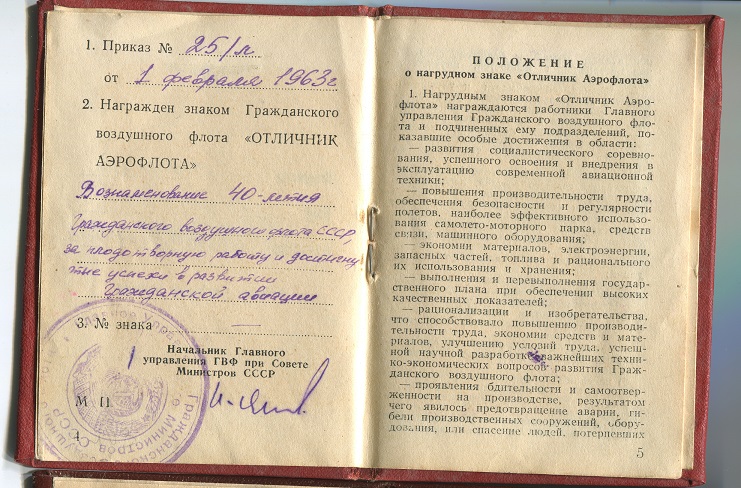 1. Приказ № 25/л
от 1 февраля 1963г
2. Награжден знаком Гражданского
воздушного флота «ОТЛИЧНИК
АЭРОФЛОТА»
Вознаменование 40-летия
Гражданского воздушного флота СССР,
за плодотворную работу и достигну
тые успехи в развитии
Гражданской авиации
3. № знака —
Начальник Главного
управления ГВФ при Совете
Министров СССР
М П
ПОЛОЖЕНИЕ
о нагрудном знаке «Отличник Аэрофлота»
1. Нагрудным знаком «Отличник Аэро-
флота» награждаются работники Главного
управления Гражданского воздушного фло-
та и подчиненных ему подразделений, по-
казавшие особые достижения в области:
— развития социалистического соревно-
вания, успешного освоения и внедрения в
эксплуатацию современной авиационной
техники;
— повышения производительности труда,
обеспечения безопасности и регулярности
полетов, наиболее эффективного использо-
вания самолето-моторного парка, средств
связи, машинного оборудования;
— экономии материалов, электроэнергии,
запасных частей, топлива и рационального
их использования и хранения;
— выполнения и перевыполнения государ-
ственного плана при обеспечении высоких
качественных показателей;
— рационализации и изобретательства,
что способствовало повышению производи-
тельности труда, экономии средств и мате-
риалов, улучшению условий труда, успеш-
ной научной разработке важнейших техни-
ко-экономических вопросов развития Граж-
данского воздушного флота;
— проявления бдительности и самоотвер-
женности на производстве, результатом
чего явилось предотвращение аварии, ги-
бели производственных сооружений, обору-
дования, или спасение людей, потерпевших
5